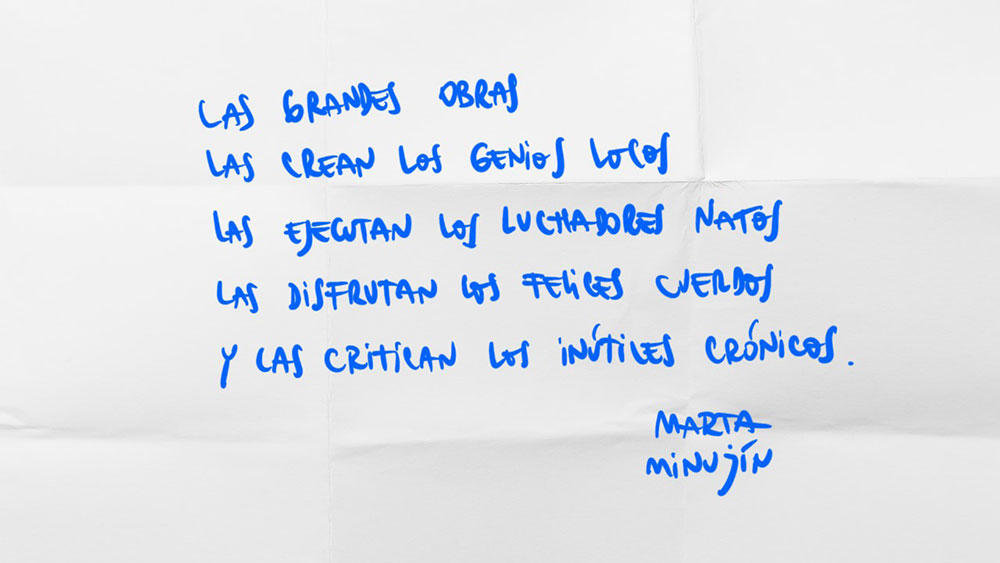 LAS GRANDES OBRAS
LAS CREAN LOS GENIOS LOCOS
LAS EJECUTAN LOS LUCHADORES NATOS
LAS DISFRUTAN LOS FELICES CUERDOS
Y LAS CRITICAN LOS INÚTILES CRÓNICOS.
MARTA
MINUJÍN